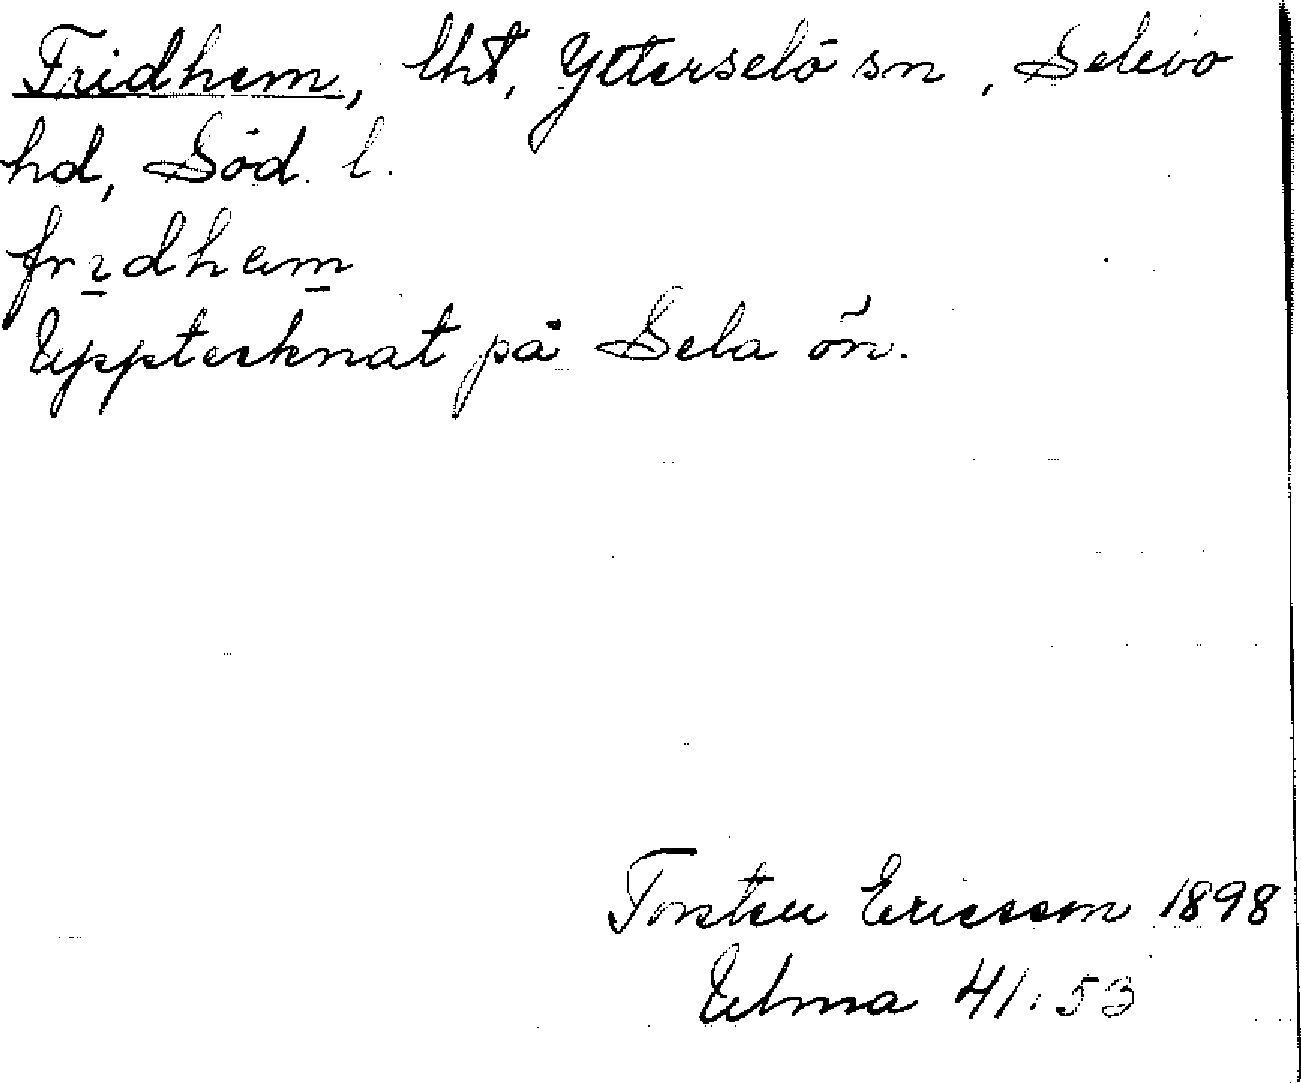 Fridhem, lht, Ytterselö sn, Selebo
hd, Söd. l.
frıdhem
Upptecknat på Sela ön.
Torsten Ericsson 1898
Ulma 41:53